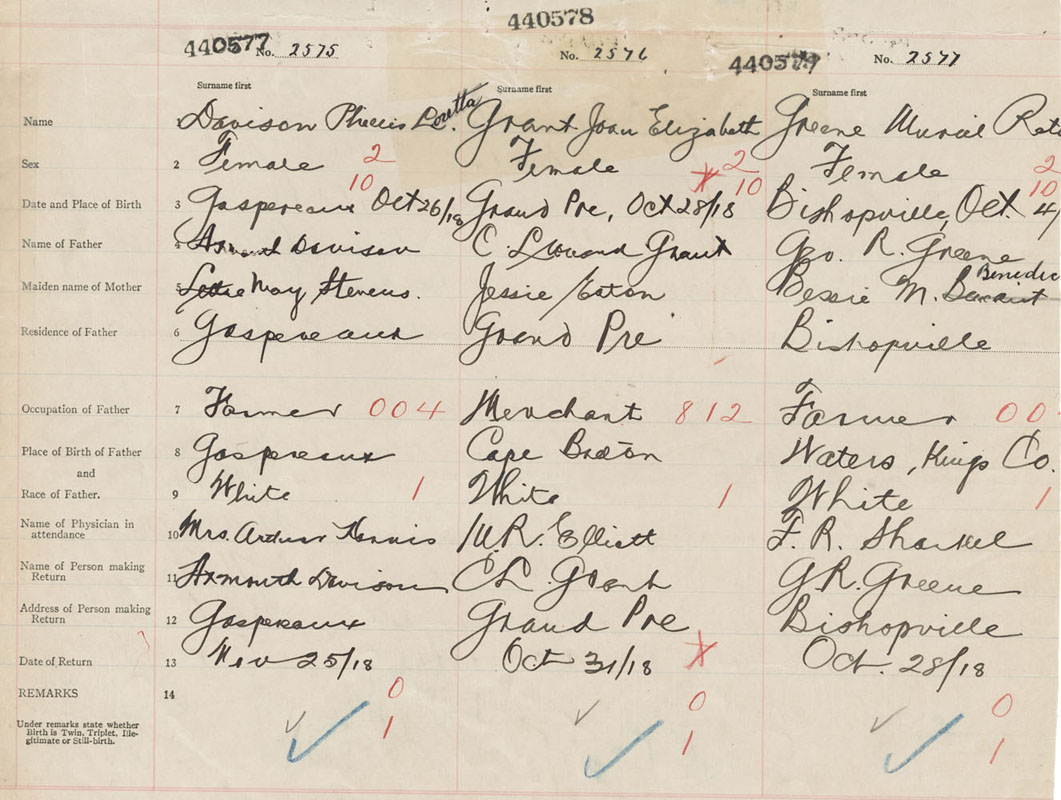 440578
440577 No. 2575 No. 2576 440579 No. 2577
Surname first Surname first Surname first
Name 1 Davison Phellis Loretta. Grant Joan Elizabeth Greene Murial
Sex 2 Female 2 Female 2 Female 2
10 10 10
Date and Place of Birth 3 Gaspereaux Oct 26/18 Grand Pre, Oct 28/18 Bishopville, Oct. 4/
Name of Father 4 Davison C. Leonard Grant Geo. R. Greene
Benedic
Maiden name of Mother 5 May Stevens. Jessie Eaton Bessie M.
Residence of Father 6 Gaspereaux Grand Pre Bishopville
Occupation of Father 7 Farmer 004 Merchant 812 Farmer 00
Place of Birth of Father 8 Gaspreaux Cape Breton Waters, Kings Co.
and
Race of Father. 9 White 1 White 1 White 1
Name of Physician in
attendance 10 Mrs. Arthur W.R. Elliott F. R.
Name of Person making
Return 11 Axmouth Davison C.L. Grant G.R. Greene
Address of Person making
Return 12 Gaspereaux Grand Pre Bishopville
Date of Return 13 Nov 25/18 Oct 31/18 Oct. 28/18
REMARKS 14 0 0 0
Under remarks state whether
Birth is Twin, Triplet, Ille-
gitimate or Still-birth. 1 1 1